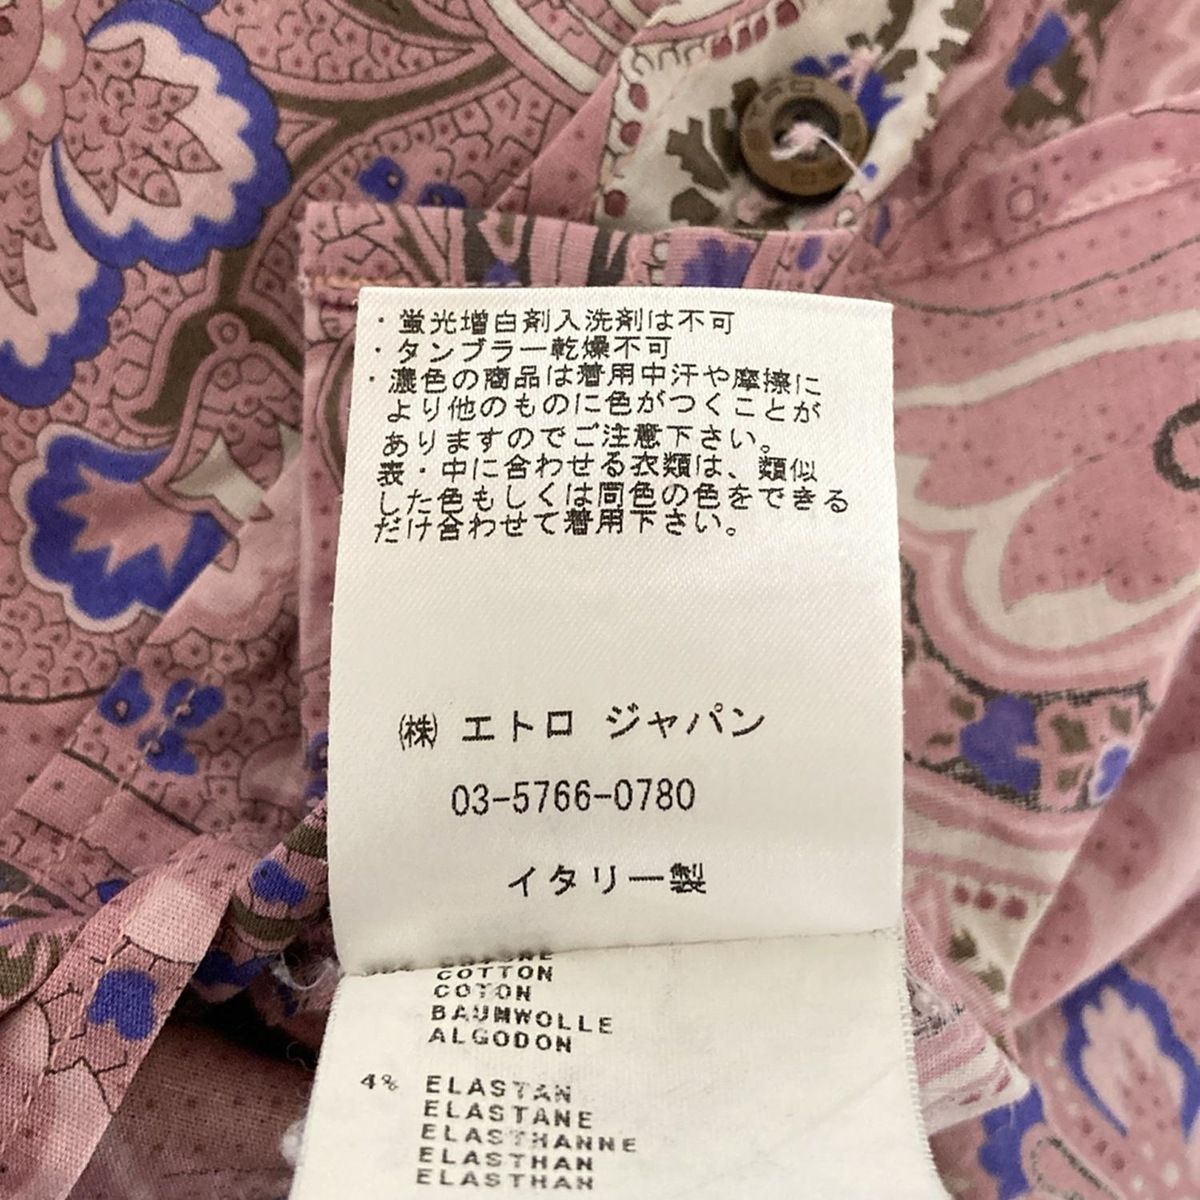 ・蛍光増白剤入洗剤は不可
・タンブラー乾燥不可
・濃色の商品は着用中汗や摩擦に
より他のものに色がつくことが
ありますのでご注意下さい。
表・中に合わせる衣類は、類似
した色もしくは同色の色をできる
だけ合わせて着用下さい。
㈱ エトロ ジャパン
03-5766-0780
イタリー製
COTTON
COTON
BAUMWOLLE
ALGODON
4% ELASTAN
ELASTANE
ELASTHANNE
ELASTHAN
ELASTHAN